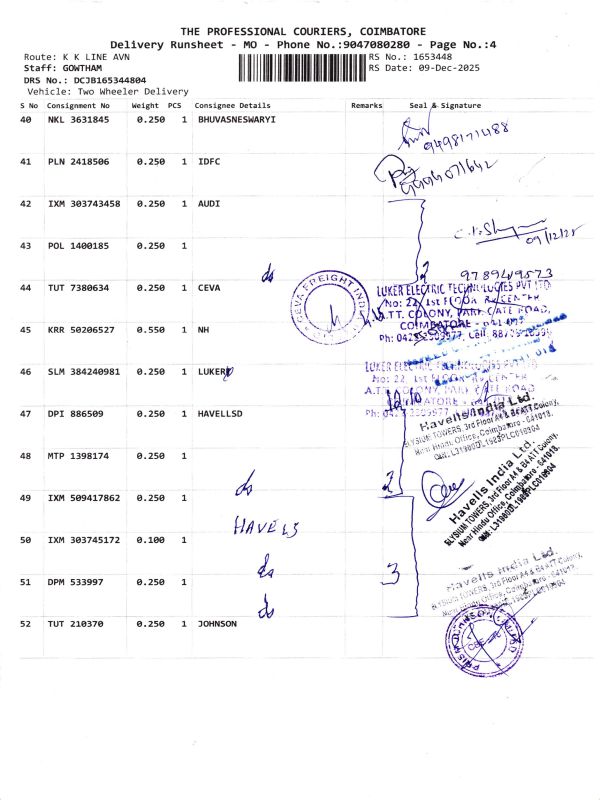 THE PROFESSIONAL COURIERS, COIMBATORE
Delivery Runsheet - MO - Phone No.:9047080280 - Page No.:4
Route: K K LINE AVN
RS No.: 1653448
Staff: GOWTHAM
RS Date: 09-Dec-2025
DRS No.: DCJB165344804
Vehicle: Two Wheeler Delivery
S No Consignment No Weight PCS Consignee Details Remarks Seal & Signature
40 NKL 3631845 0.250 1 BHUVASNESWARYI
9498171488
41 PLN 2418506 0.250 1 IDFC
9994071642
42 IXM 303743458 0.250 1 AUDI
09/12/25
43 POL 1400185 0.250 1
do
2
9789449573
44 TUT 7380634 0.250 1 CEVA
CEVA FREIGHT INDIA
LUKER ELECTRIC TECHNOLOGIES PVT LTD
No: 22, 1st FLOOR, R. CENTER
A.T.T. COLONY, PARK GATE ROAD,
COIMBATORE
45 KRR 50206527 0.550 1 NH
46 SLM 384240981 0.250 1 LUKER
LUKER ELECTRIC TECHNOLOGIES PVT LTD
No: 22, 1st FLOOR, R. CENTER
A.T.T. COLONY, PARK GATE ROAD
47 DPI 886509 0.250 1 HAVELLSD
Havells India Ltd.
ELYSIUM TOWERS, 3rd Floor A4 & B4 ATT Colony,
Near Hindu Office, Coimbatore - 641018.
CIN: L31900DL1983PLC016304
48 MTP 1398174 0.250 1
do
2
Havells India Ltd.
ELYSIUM TOWERS, 3rd Floor A4 & B4 ATT Colony,
Near Hindu Office, Coimbatore - 641018.
CIN: L31900DL1983PLC016304
49 IXM 509417862 0.250 1
HAVELS
50 IXM 303745172 0.100 1
do
3
Havells India Ltd.
ELYSIUM TOWERS, 3rd Floor A4 & B4 ATT Colony,
Near Hindu Office, Coimbatore - 641018.
51 DPM 533997 0.250 1
do
52 TUT 210370 0.250 1 JOHNSON